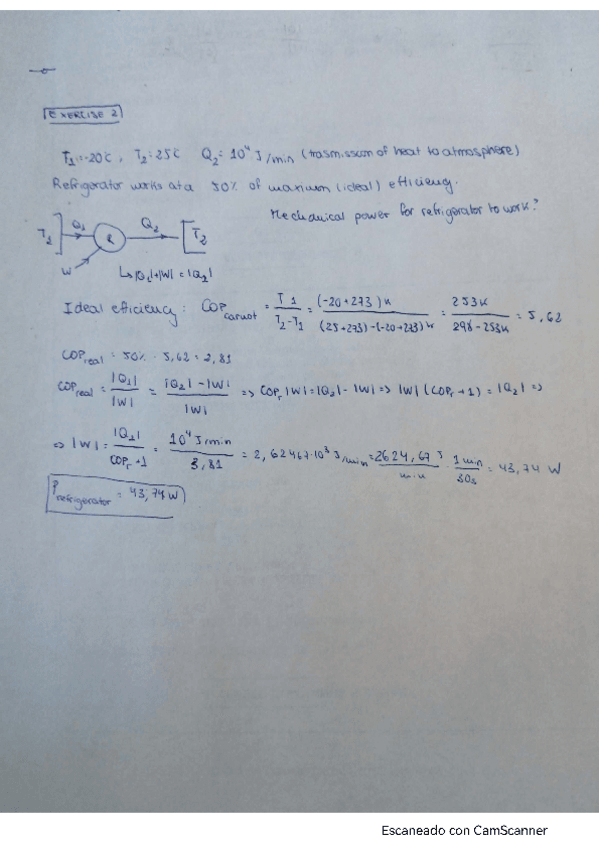 EXERCISE 2
T1 = -20°C, T2 = 25°C Q2 = 10⁴ J/min (trasmissum of heat to atmosphere)
Refrigerator works at a 50% of maximum (ideal) efficiency.
Mechanical power for refrigerator to work?
T2 Q1 R Q2 T2
W ↳ |Q1|+|W| = |Q2|
Ideal efficiency: COP carnot = T1/(T2-T1) = (-20+273)K/((25+273)-(-20+273)K) = 253K/(298-253K) = 5,62
COPreal = 50% · 5,62 = 2,81
COPreal = |Q1|/|W| = (|Q2|-|W|)/|W| => COPr|W| = |Q2|-|W| => |W|(COPr+1) = |Q2| =>
=> |W| = |Q2|/(COPr+1) = 10⁴ J/min/3,81 = 2,62467·10³ J/min = 2624,67 J/min · 1min/60s = 43,74 W
Prefrigerator = 43,74 W
Escaneado con CamScanner